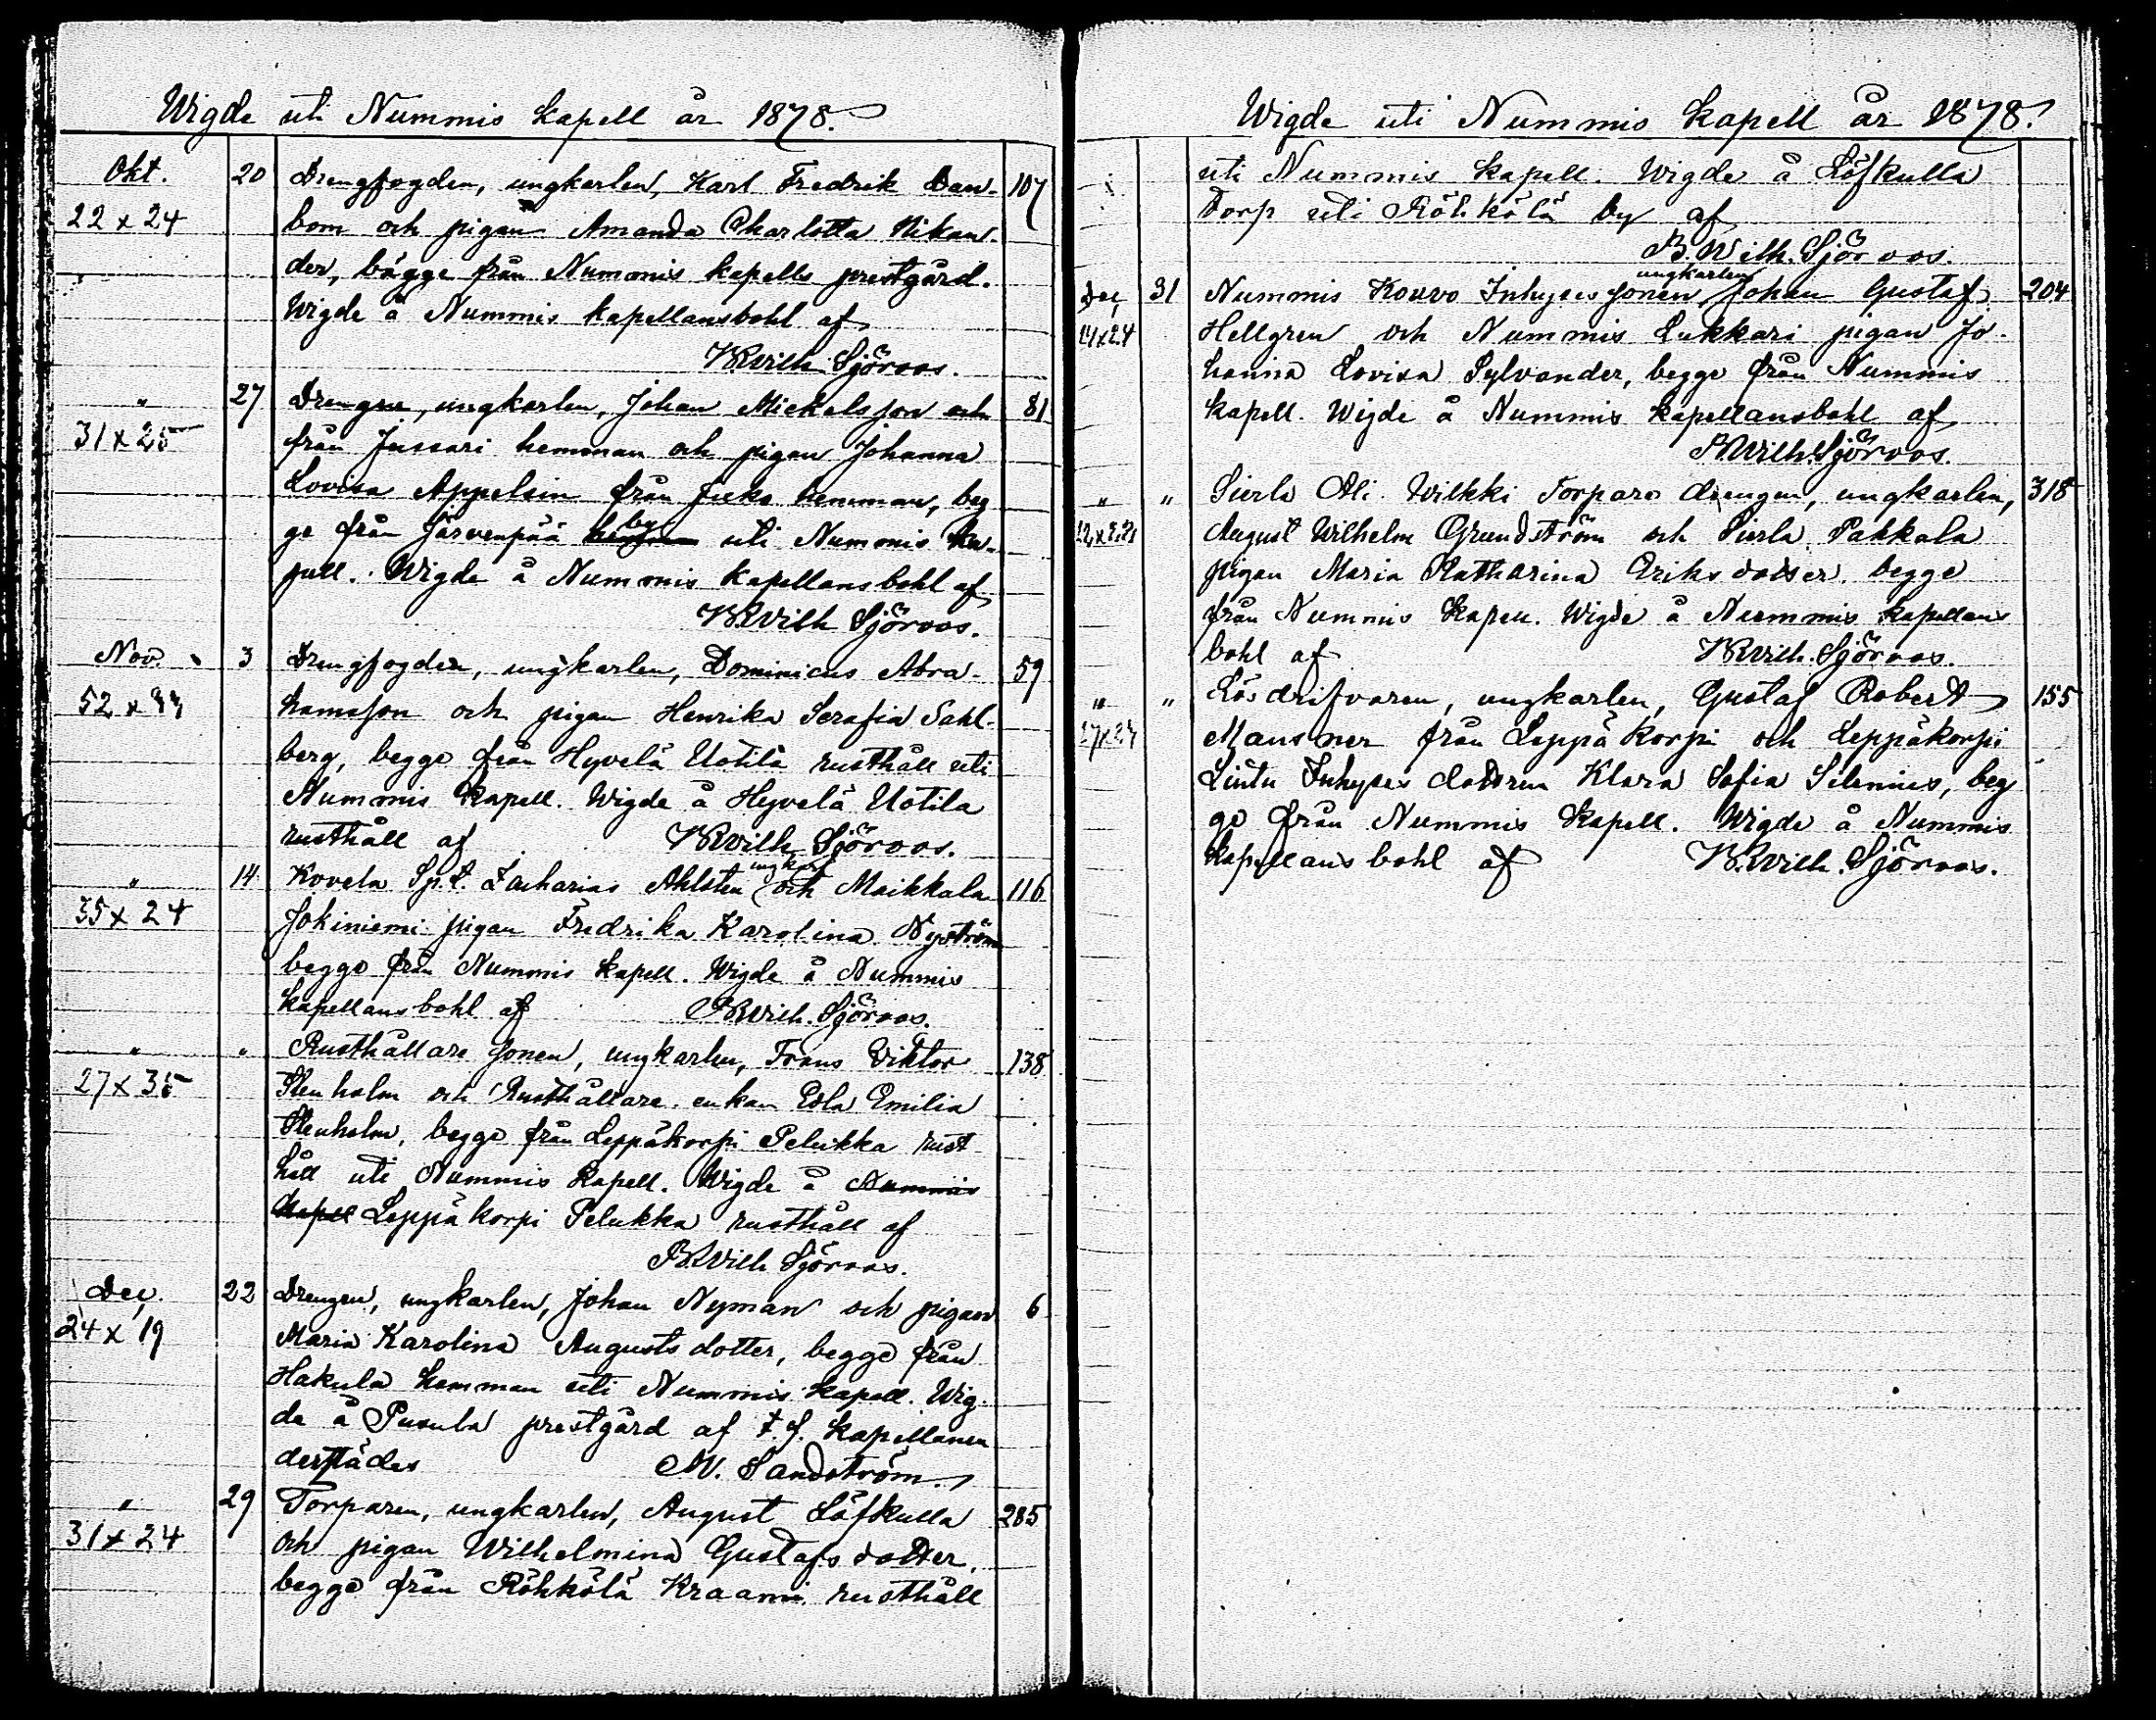 Wigde uti Nummis kapell år 1878.
Okt. 20 Drengfogden, ungkarlen, Karl Fredrik Dan- 107
22 x 24 bom och pigan Amanda Charlotta Nikan-
der, bägge från Nummis kapells prestgård.
Wigde å Nummis kapellansbohl af
B.Wilh. Sjöroos.
" 27 Drengen, ungkarlen, Johan Mickelsson och 81
31 x 25 från Jussari hemman och pigan Johanna
Lovisa Appelsin från Juks hemman, beg
ge från Järvenpää by uti Nummis ka-
pell. Wigde å Nummis kapellansbohl af
B.Wilh Sjöroos.
Nov. 3 Drengfogden, ungkarlen, Dominicus Abra- 59
52 x hamsson och pigan Henrika Serafia Sahl-
berg, begge från Hyvelä Uotila rusthåll uti
Nummis kapell. Wigde å Hyvelä Uotila
rusthåll af B.Wilh Sjöroos.
ungk
" 14 Kovela Sp.t. Zacharias Ahlsten och Maikkala 116
35 x 24 Jokiniemi pigan Fredrika Karolina Nyström
begge från Nummis kapell. Wigde å Nummis
kapellansbohl af B.Wilh. Sjöroos.
" " Rusthållare sonen, ungkarlen, Frans Viktor 138
27 x 35 Stenholm och Rusthållare enkan Edla Emilia
Stenholm, begge från Leppäkorpi Pelukka rust-
håll uti Nummis kapell. Wigde å Nummis
kapell Leppäkorpi Pelukka rusthåll af
B.Wilh Sjöroos.
Dec. 22 Drengen, ungkarlen, Johan Nyman och pigan 6
24 x 19 Maria Karolina Augustsdotter, begge från
Hakula hemman uti Nummis kapell. Wig-
de å Pusula prestgård af t.f. kapellanen
derstädes Sandström.
" 29 Torparen, ungkarlen, August Löfkulla 285
31 x 24 och pigan Wilhelmina Gustafsdotter,
begge från Röhkölä Kraami rusthåll
Wigde uti Nummis kapell år 1878.
uti Nummis kapell. Wigde å Löfkulla
Torp uti Röhkölä by af
B. Wilh. Sjöroos.
ungkarlen
Dec. 31 Nummis Kouvo Inhyses sonen Johan Gustaf 204
24x24 Hellgren och Nummis Lukkari pigan Jo-
hanna Lovisa Sylvander, begge från Nummis
kapell. Wigde å Nummis kapellansbohl af
B.Wilh.Sjöroos.
" " Sierla Ali. Wilkki Torpare drengen, ungkarlen, 318
August Wilhelm Grundström och Sierla Pakkala
pigan Maria Katharina Eriksdotter, begge
från Nummis kapell. Wigde å Nummis kapellans
bohl af B.Wilh. Sjöroos.
" " Lösdrifvaren, ungkarlen, Gustaf Robert 155
Mausner från Leppäkorpi och Leppäkorpi
Lintu Inhyses dottren Klara Sofia Silenius, beg
ge från Nummis kapell. Wigde å Nummis
kapellansbohl af B.Wilh. Sjöroos.